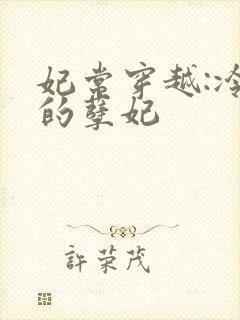 妃常穿越:冷
的孽妃
許荣茂